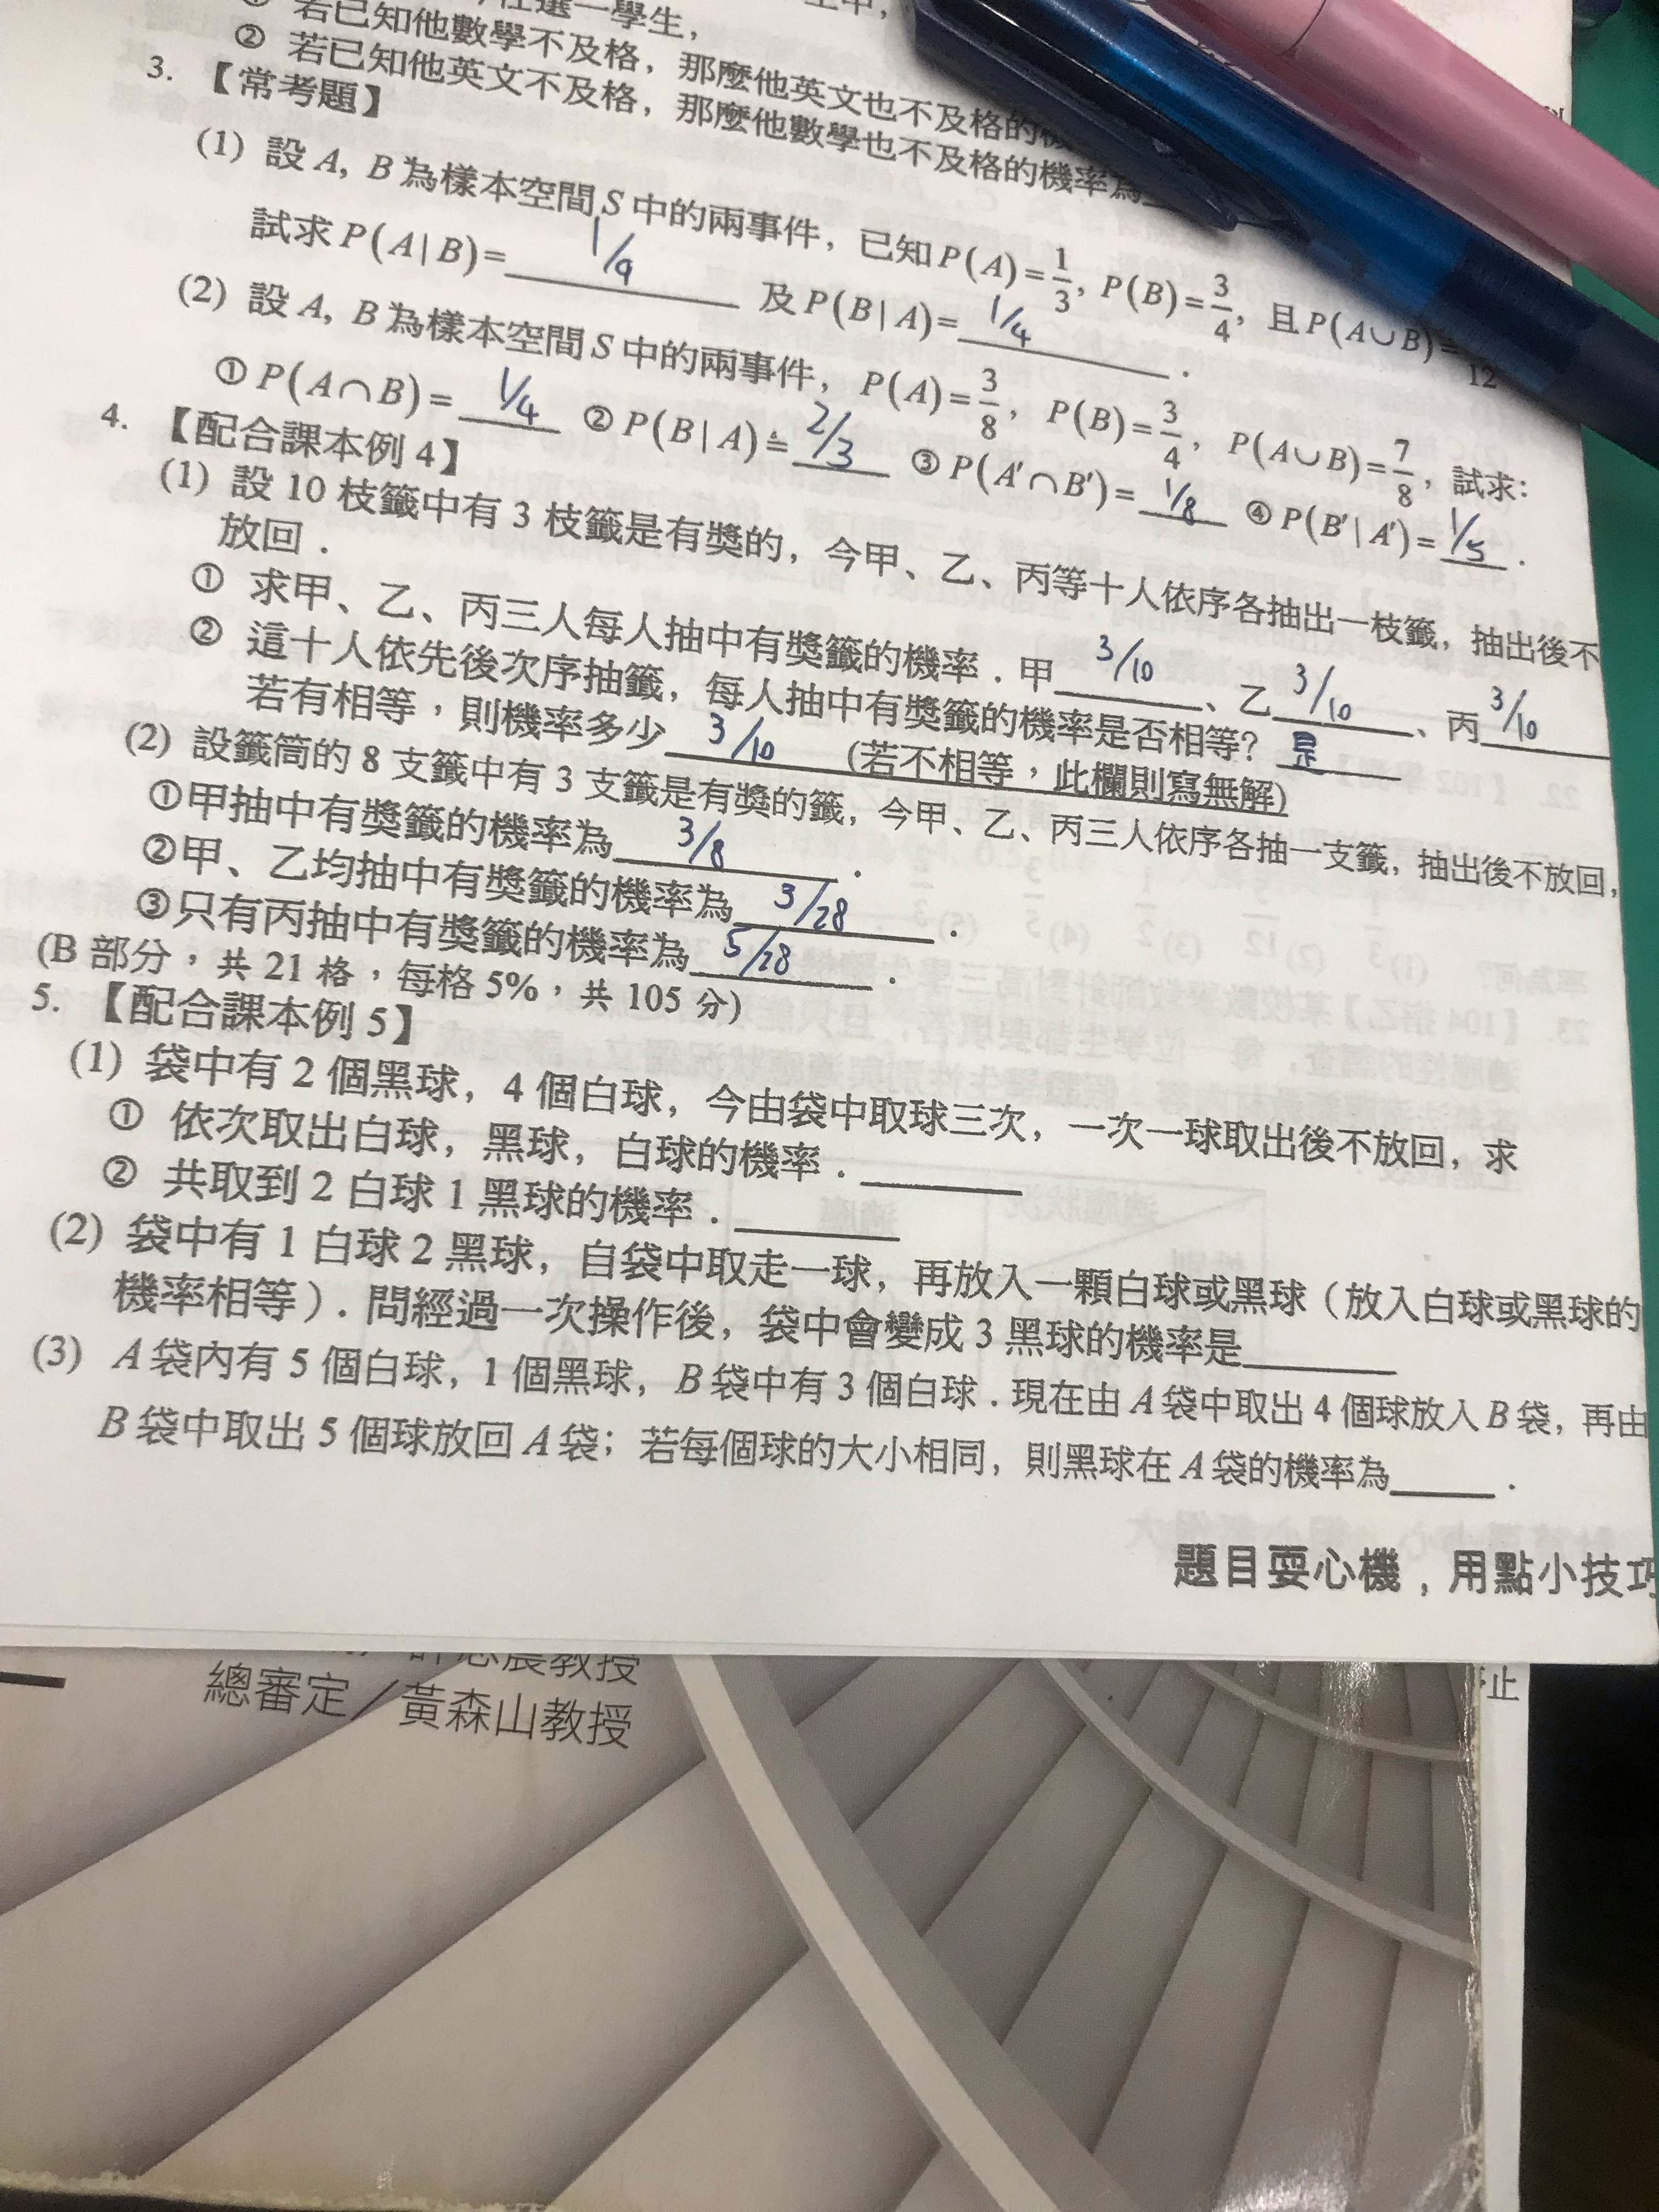 任選一學生，
① 若已知他數學不及格，那麼他英文也不及格的機
② 若已知他英文不及格，那麼他數學也不及格的機率為
3. 【常考題】
(1) 設 A, B 為樣本空間 S 中的兩事件，已知 P(A)=1/3, P(B)=3/4, 且 P(A∪B)= /12
試求 P(A|B)= 1/9 及 P(B|A)= 1/4 .
(2) 設 A, B 為樣本空間 S 中的兩事件，P(A)=3/8, P(B)=3/4, P(A∪B)=7/8, 試求：
① P(A∩B)= 1/4 ② P(B|A)= 2/3 ③ P(A'∩B')= 1/8 ④ P(B'|A')= 1/5 .
4. 【配合課本例 4】
(1) 設 10 枝籤中有 3 枝籤是有獎的，今甲、乙、丙等十人依序各抽出一枝籤，抽出後不
放回．
① 求甲、乙、丙三人每人抽中有獎籤的機率．甲 3/10 、乙 3/10 、丙 3/10
② 這十人依先後次序抽籤，每人抽中有獎籤的機率是否相等？ 是
若有相等，則機率多少 3/10 (若不相等，此欄則寫無解)
(2) 設籤筒的 8 支籤中有 3 支籤是有獎的籤，今甲、乙、丙三人依序各抽一支籤，抽出後不放回，
①甲抽中有獎籤的機率為 3/8 ．
②甲、乙均抽中有獎籤的機率為 3/28 ．
③只有丙抽中有獎籤的機率為 5/28 ．
(B 部分，共 21 格，每格 5%，共 105 分)
5. 【配合課本例 5】
(1) 袋中有 2 個黑球，4 個白球，今由袋中取球三次，一次一球取出後不放回，求
① 依次取出白球，黑球，白球的機率．
② 共取到 2 白球 1 黑球的機率．
(2) 袋中有 1 白球 2 黑球，自袋中取走一球，再放入一顆白球或黑球（放入白球或黑球的
機率相等）．問經過一次操作後，袋中會變成 3 黑球的機率是
(3) A 袋內有 5 個白球，1 個黑球，B 袋中有 3 個白球．現在由 A 袋中取出 4 個球放入 B 袋，再由
B 袋中取出 5 個球放回 A 袋；若每個球的大小相同，則黑球在 A 袋的機率為 ．
題目耍心機，用點小技巧
教授
總審定／黃森山教授
止